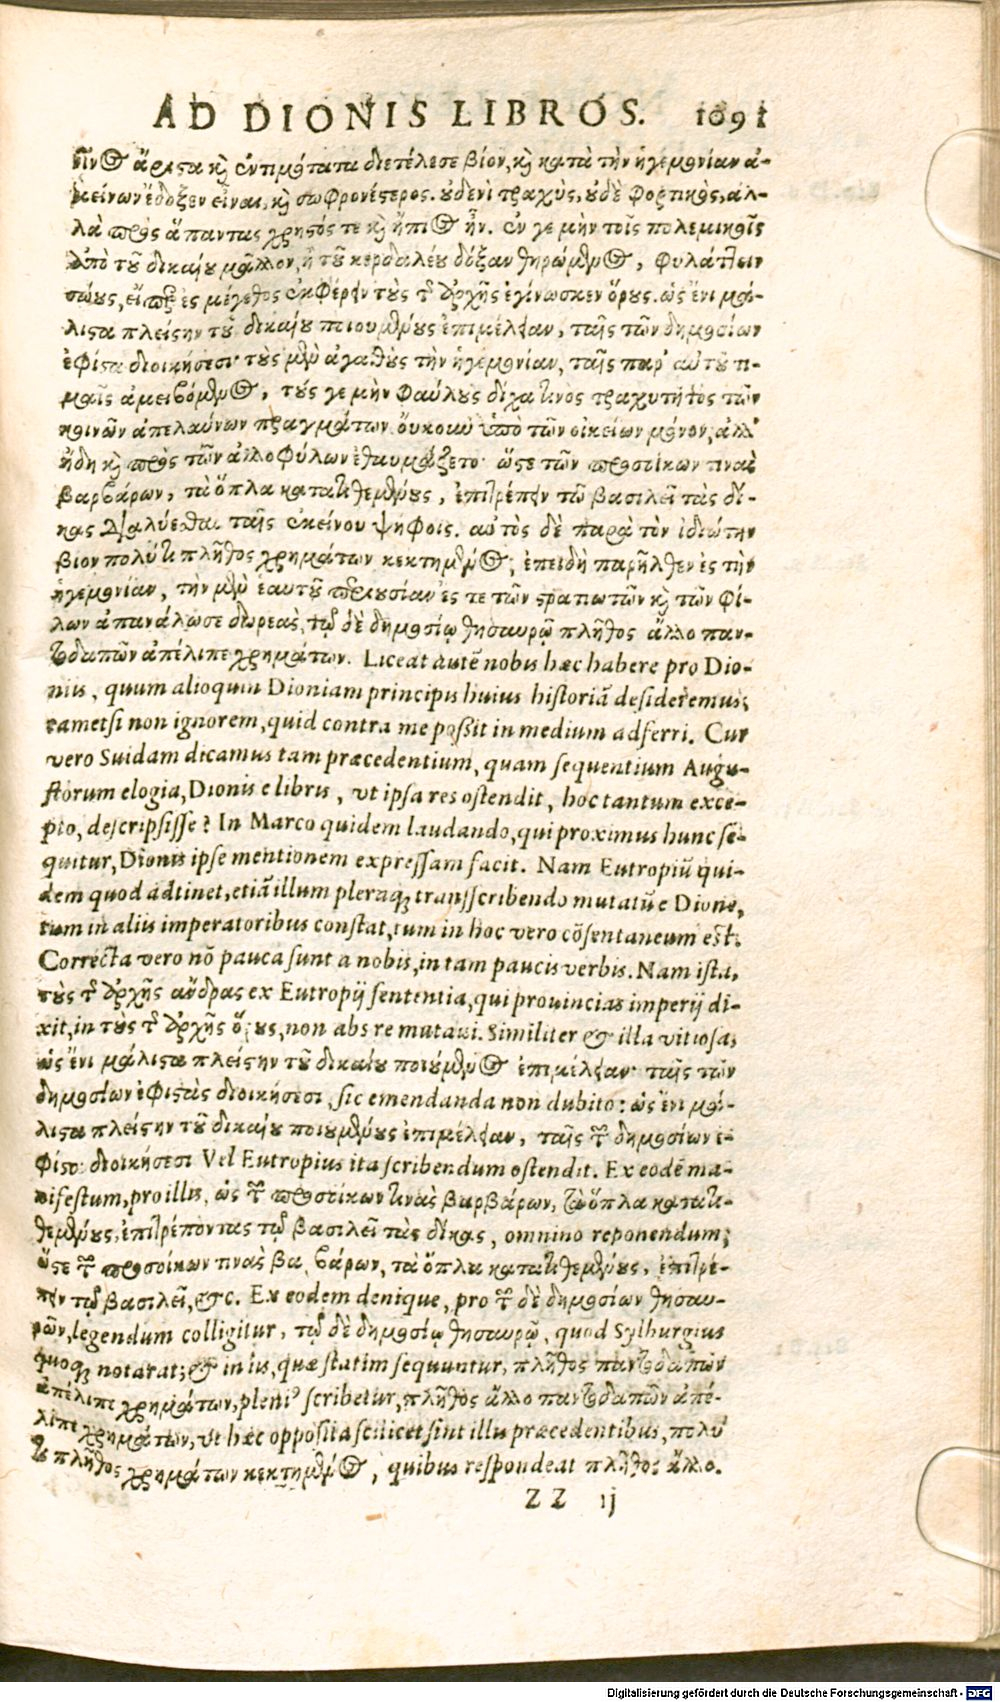 AD DIONIS LIBROS. 1091
ἄριστα κỳ ἐντιμότατα διετέλεσε βίον, κỳ κατὰ τὴν ἡγεμονίαν ἀ-
μείνων ἔδοξεν εἶναι, κỳ σωφρονέστερος. ȣ̓δενὶ τραχὺς, ȣ̓δὲ φορτικὸς, ἀλ-
λὰ πρὸς ἅπαντας χρηστός τε κỳ ἤπιος ἦν. ἐν γε μὴν τοῖς πολεμικοῖς
ἀπὸ τȣ͂ δικαίȣ μᾶλλον, ἢ τȣ͂ κερδαλέȣ δόξαν θηρώμενος, φυλάττειν
σώȣς, εἴπερ ἐς μέγεθος ἐκφέρειν τȣ̀ς τ͂ ἀρχῆς ἐγίνωσκεν ὅρȣς. ὡς ἔνι μά-
λιστα πλείστην τȣ͂ δικαίȣ ποιουμένȣς ἐπιμέλειαν, ταῖς τῶν δημοσίων
ἐφίστα διοικήσεσι· τȣ̀ς μὲν ἀγαθȣ̀ς τὴν ἡγεμονίαν, ταῖς παρ' αὐτȣ͂ τι-
μαῖς ἀμειβόμενος, τȣ́ς γε μὴν φαύλȣς δίχα τινὸς τραχυτήτος τῶν
κοινῶν ἀπελαύνων πραγμάτων. ὄυκουν ὑπὸ τῶν οἰκείων μόνον, ἀλλ'
ἤδη κỳ πρὸς τῶν ἀλλοφύλων ἐθαυμάζετο· ὥστε τῶν προσοίκων τινὰς
βαρβάρων, τὰ ὅπλα καταθεμένȣς, ἐπιτρέπειν τῷ βασιλεῖ τὰς δί-
κας διαλύεσθαι ταῖς ἐκείνου ψήφοις. αὐτὸς δὲ παρὰ τὸν ἰδιώτην
βίον πολύ τι πλῆθος χρημάτων κεκτημένος, ἐπειδὴ παρῆλθεν ἐς τὴν
ἡγεμονίαν, τὴν μὲν ἑαυτȣ͂ περιουσίαν ἐς τε τῶν στρατιωτῶν κỳ τῶν φί-
λων ἀπανάλωσε δωρεὰς, τῷ δὲ δημοσίῳ θησαυρῷ πλῆθος ἄλλο παν-
τοδαπῶν ἀπέλιπε χρημάτων. Liceat autẽ nobis hæc habere pro Dio-
niis, quum alioquin Dioniam principis huius historiã desideremus;
tametsi non ignorem, quid contra me possit in medium adferri. Cur
vero Suidam dicamus tam præcedentium, quam sequentium Augu-
storum elogia, Dionis e libris, vt ipsa res ostendit, hoc tantum exce-
pto, descripsisse? In Marco quidem laudando, qui proximus hunc se-
quitur, Dionis ipse mentionem expressam facit. Nam Eutropiũ qui-
dem quod adtinet, etiã illum pleraq; transscribendo mutatũ e Dione,
tum in aliis imperatoribus constat, tum in hoc vero cõsentaneum est.
Correcta vero nõ pauca sunt a nobis, in tam paucis verbis. Nam ista,
τȣ̀ς τ͂ ἀρχῆς ἄνδρας ex Eutropij sententia, qui prouincias imperij di-
xit, in τȣ̀ς τ͂ ἀρχῆς ὅρȣς, non abs re mutaui. Similiter & illa vitiosa,
ὡς ἔνι μάλιστα πλείστην τȣ͂ δικαίȣ ποιȣ́μενος ἐπιμέλειαν· ταῖς τῶν
δημοσίων ἐφιστὰς διοικήσεσι, sic emendanda non dubito: ὡς ἔνι μά-
λιστα πλείστην τȣ͂ δικαίȣ ποιουμένȣς ἐπιμέλειαν, ταῖς τῶν δημοσίων ἐ-
φίστα διοικήσεσι Vel Eutropius ita scribendum ostendit. Ex eodẽ ma-
nifestum, pro illis, ὡς τῶν προσοίκων τινὰς βαρβάρων, τὰ ὅπλα κατατι-
θεμένȣς, ἐπιτρέποντας τῷ βασιλεῖ τὰς δίκας, omnino reponendum;
ὥστε τῶν προσοίκων τινὰς βαρβάρων, τὰ ὅπλα κατατιθεμένȣς, ἐπιτρέ-
πειν τῷ βασιλεῖ, &c. Ex eodem denique, pro τῶν δὲ δημοσίων θησαυ-
ρῶν, legendum colligitur, τῷ δὲ δημοσίῳ θησαυρῷ, quod Sylburgius
quoq; notarat; & in iis, quæ statim sequuntur, πλῆθος παντοδαπῶν
ἀπέλιπε χρημάτων, pleni' scribetur, πλῆθος ἄλλο παντοδαπῶν ἀπέ-
λιπε χρημάτων, vt hæc opposita scilicet sint illis præcedentibus, πολύ
τι πλῆθος χρημάτων κεκτημένος, quibus respondeat πλῆθος ἄλλο.
ZZ ij
Digitalisierung gefördert durch die Deutsche Forschungsgemeinschaft - DFG